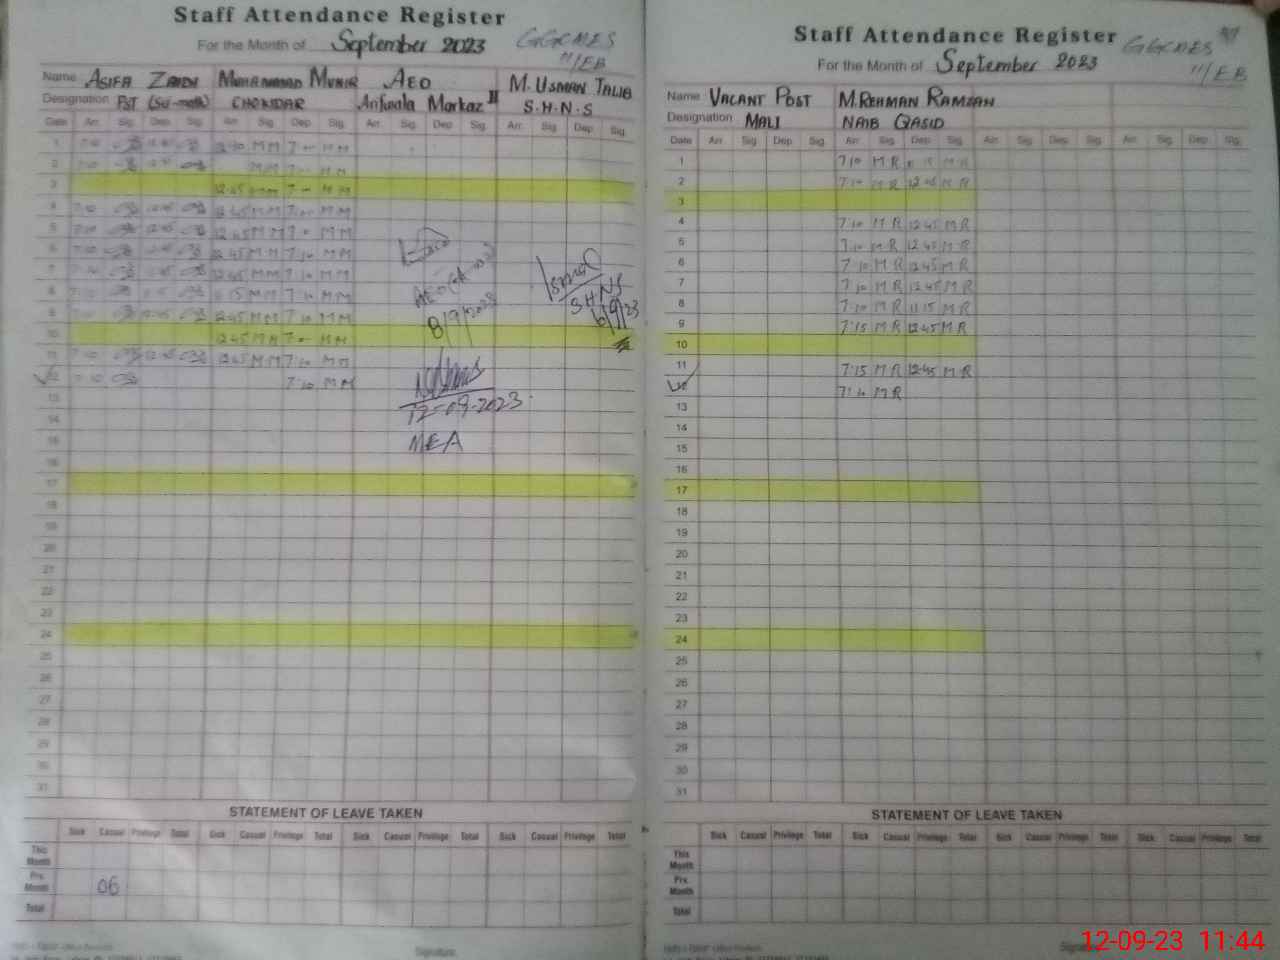 Staff Attendance Register
For the Month of September 2023 GGCMES 11/EB
Name ASIFA ZAIDI MUHAMMAD MUNIR AEO M. USMAN TALIB
Designation PST (Sci-math) CHOKIDAR Arifwala Markaz II S.H.N.S
Date Arr. Sig. Dep. Sig. Arr. Sig. Dep. Sig. Arr. Sig. Dep. Sig. Arr. Sig. Dep. Sig.
1 7:10 12:45 12:40 MM 7:00 MM
2 7:10 12:45 MM 7:00 MM
3 12:45 MM 7:00 MM
4 7:10 12:45 12:45 MM 7:00 MM
5 7:10 12:45 12:45 MM 7:10 MM
6 7:10 12:45 12:45 MM 7:10 MM
7 7:10 12:45 MM 7:10 MM
8 7:10 11:15 MM 7:10 MM
9 12:45 12:45 MM 7:10 MM
10 12:45 MM 7:00 MM
11 7:10 12:45 12:45 MM 7:10 MM
12 7:10 7:10 MM
8/9/2023
SHNS
6/9/23
12-09-2023
MEA
13
14
15
16
17
18
19
20
21
22
23
24
25
26
27
28
29
30
31
STATEMENT OF LEAVE TAKEN
Sick Casual Privilege Total Sick Casual Privilege Total Sick Casual Privilege Total Sick Casual Privilege Total
This Month
Prv. Month 06
Total
Signature
Staff Attendance Register
For the Month of September 2023 GGCMES 11/EB
Name VACANT POST M.REHMAN RAMZAN
Designation MALI NAIB QASID
Date Arr. Sig. Dep. Sig. Arr. Sig. Dep. Sig. Arr. Sig. Dep. Sig. Arr. Sig. Dep. Sig.
1 7:10 MR 11:15 MR
2 7:10 MR 12:45 MR
3
4 7:10 MR 12:45 MR
5 7:10 MR 12:45 MR
6 7:10 MR 12:45 MR
7 7:10 MR 12:45 MR
8 7:20 MR 11:15 MR
9 7:15 MR 12:45 MR
10
11 7:15 MR 12:45 MR
12 7:10 MR
13
14
15
16
17
18
19
20
21
22
23
24
25
26
27
28
29
30
31
STATEMENT OF LEAVE TAKEN
Sick Casual Privilege Total Sick Casual Privilege Total Sick Casual Privilege Total Sick Casual Privilege Total
This Month
Prv. Month
Total
12-09-23 11:44